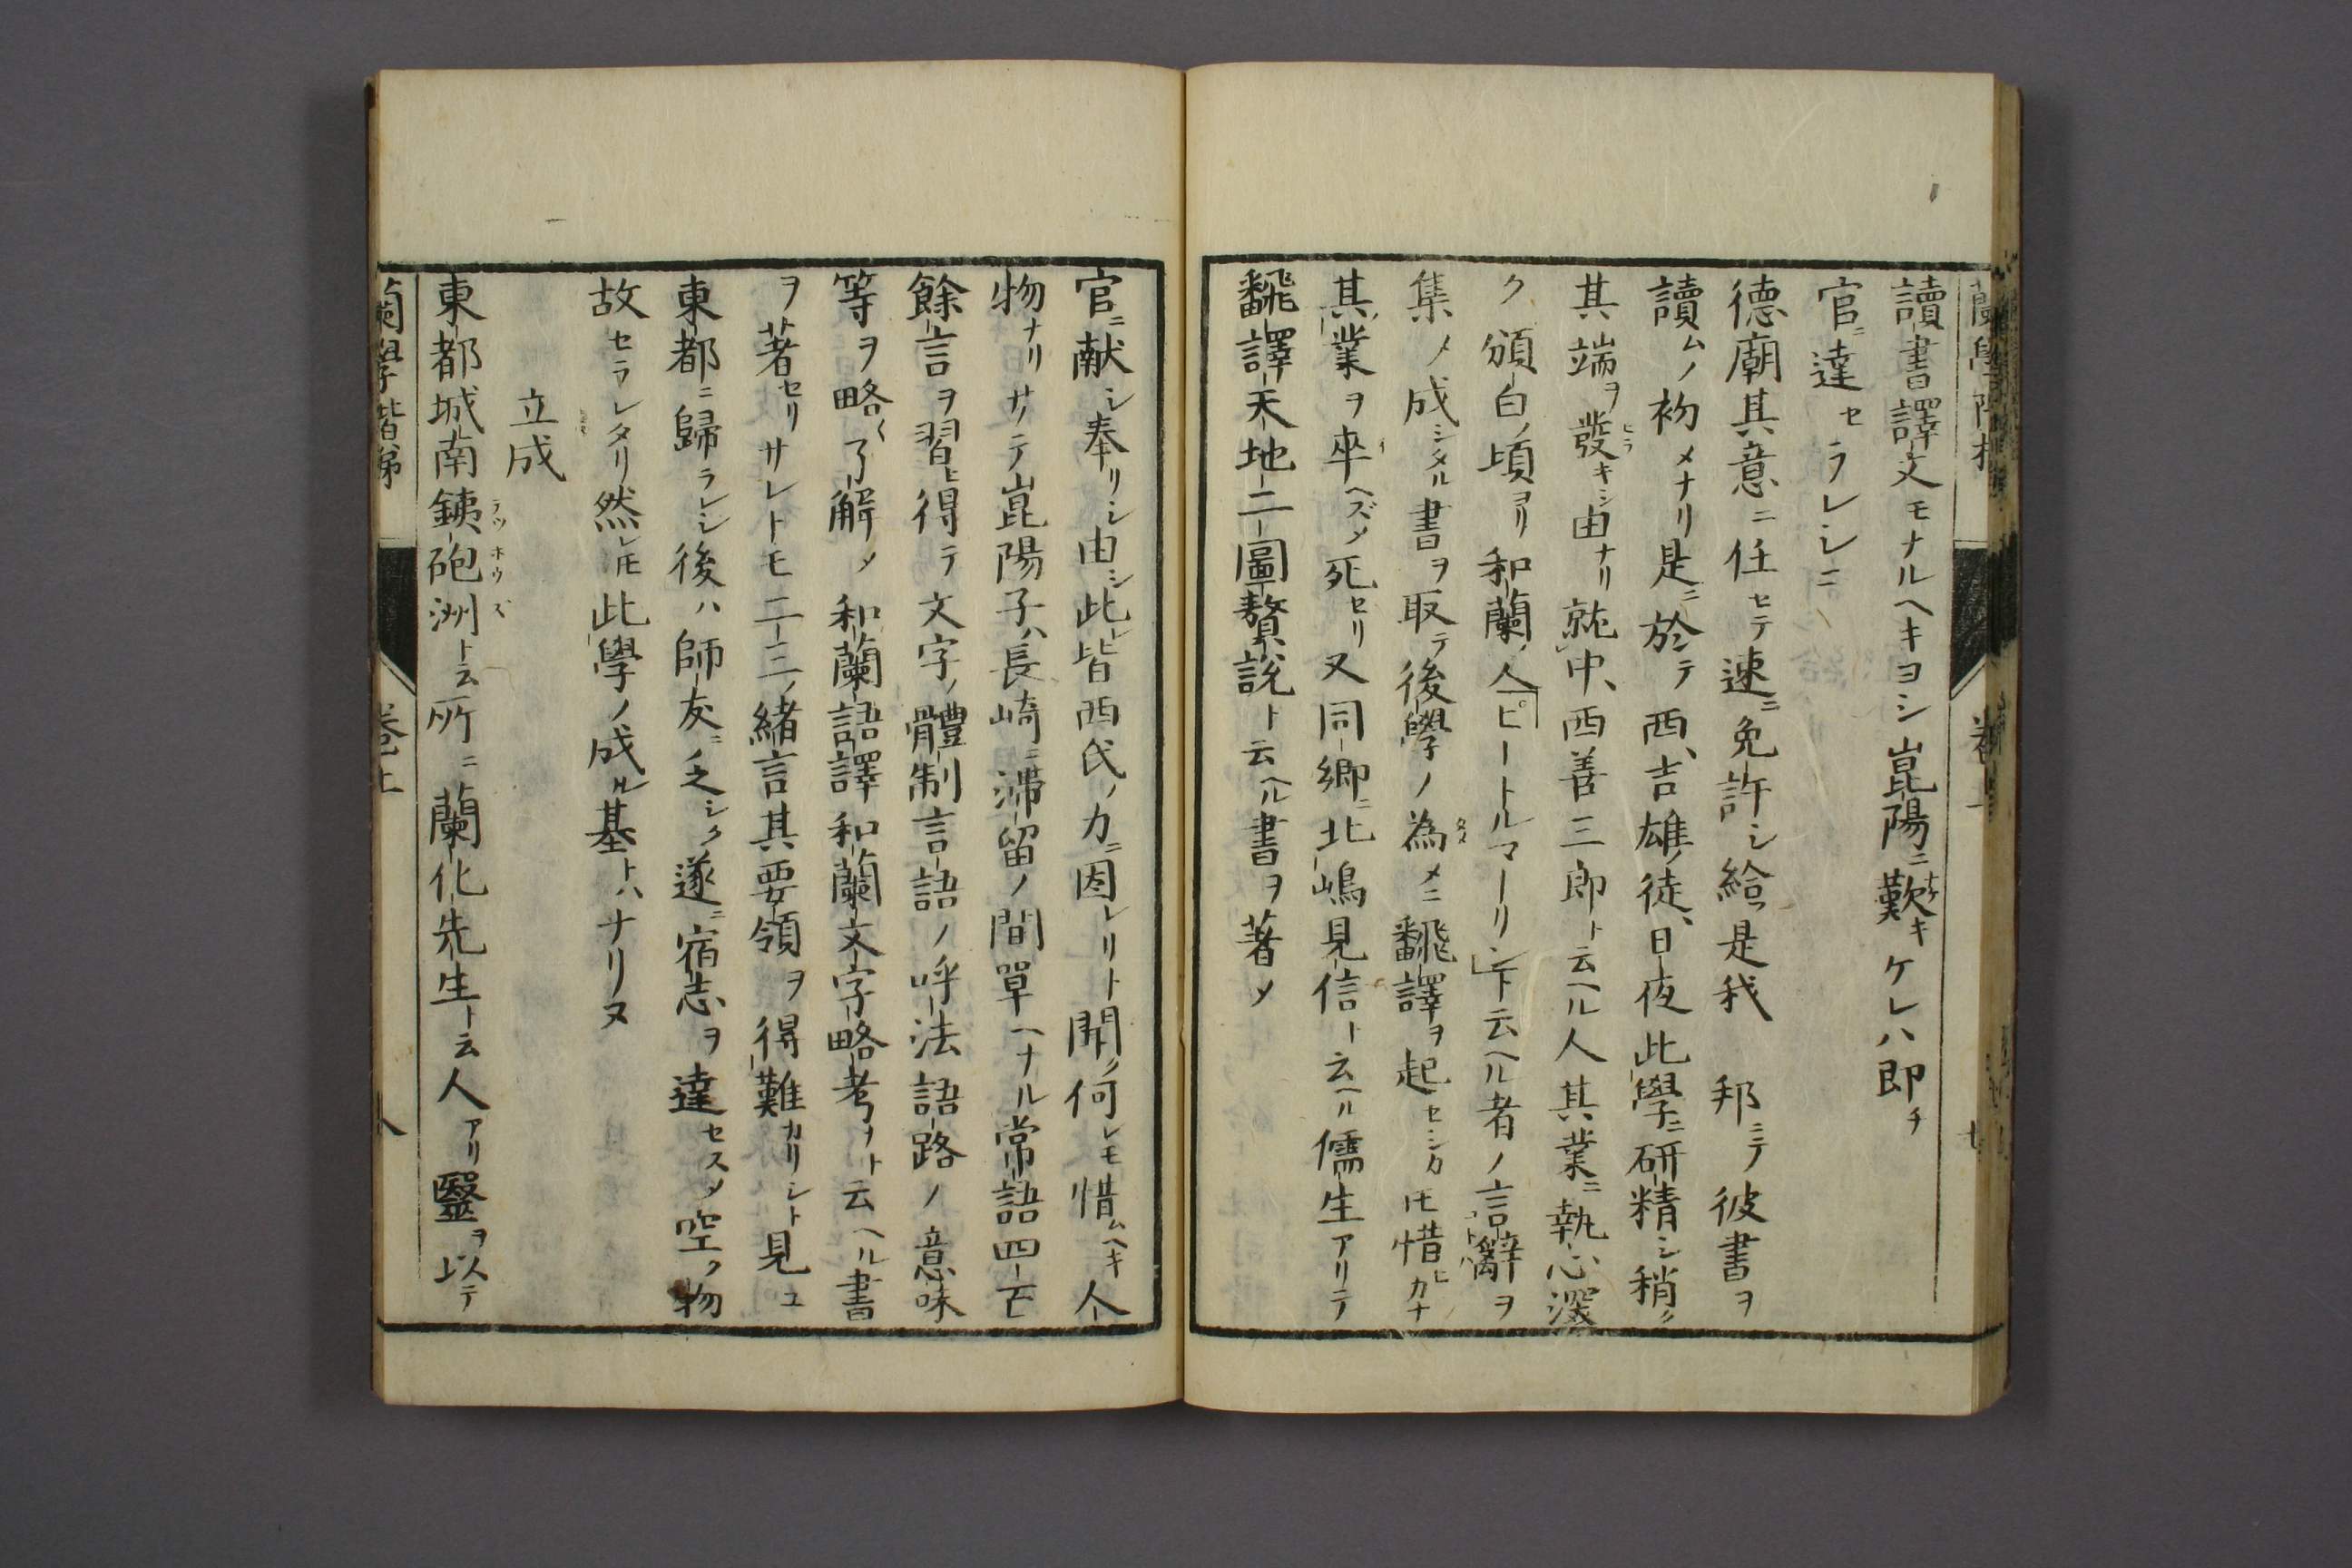 讀書譯文モナルヘキヨシ崑陽ニ歎キケレハ即チ
官ニ達セラレシニ
德廟其意ニ任セテ速ニ免許シ給フ是我　邦ニテ彼書ヲ
讀ムノ初メナリ是ニ於テ西、吉雄ノ徒、日夜此學ニ研精シ稍ク
其端ヲ發キシ由ナリ就中、西善三郎ト云ヘル人其業ニ執心深
ク頒白ノ頃ヨリ和蘭人「ピートルマーリン」ト云ヘル者ノ言辭ヲ
集メ成シタル書ヲ取テ後學ノ為メニ飜譯ヲ起セシカ𪜈惜ヒカナ
其業ヲ卒ヘズメ死セリ又同鄉ニ北嶋見信ト云ヘル儒生アリテ
飜譯天地二圖贅說ト云ヘル書ヲ著メ
官ニ献シ奉リシ由シ此レ皆西氏ノ力ニ因レリト聞ク何レモ惜ムヘキ人
物ナリサテ崑陽子ハ長崎ニ滞留ノ間單ヘナル常語四百
餘言ヲ習ヒ得テ文字ノ體制言語ノ呼法語路ノ意味
等ヲ略〱了解メ和蘭語譯和蘭文字略考ナト云ヘル書
ヲ著セリサレトモ二三ノ緒言其要領ヲ得難カリシト見ユ
東都ニ歸ラレシ後ハ師友ニ乏シク遂ニ宿志ヲ達セスメ空ク物
故セラレタリ然レ𪜈此學ノ成ル基トハナリヌ
立成
東都城南銕砲洲ト云所ニ蘭化先生ト云人アリ醫ヲ以テ
蘭學階梯
卷上
八